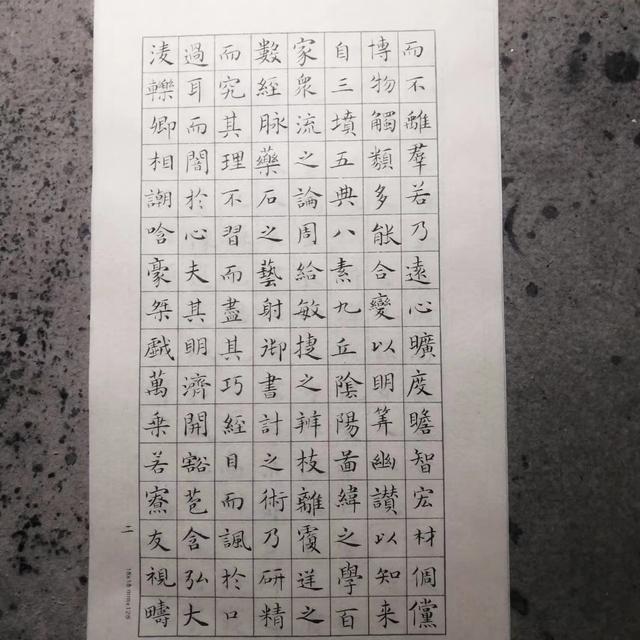 而不離羣若乃遠心曠度瞻智宏材倜儻
博物觸類多能合變以明筭幽讃以知來
自三墳五典八素九丘陰陽啚緯之學百
家衆流之論周給敏捷之辨枝離覆逆之
數經脉藥石之藝射御書計之術乃研精
而究其理不習而盡其巧經目而諷於口
過耳而闇於心夫其明濟開豁苞含弘大
淩轢卿相謿唅豪桀戲萬乗若寮友視疇
二